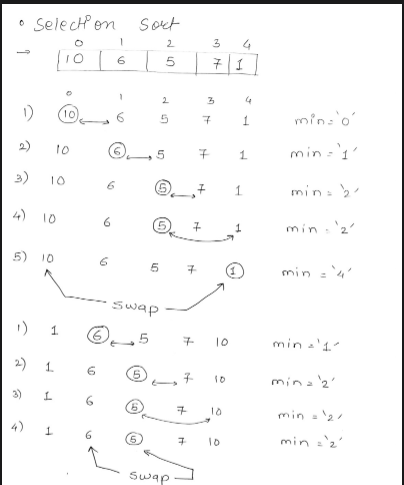 • Selection Sort
0 1 2 3 4
→ 10 6 5 7 1
0 1 2 3 4
1) 10 6 5 7 1 min='0'
2) 10 6 5 7 1 min='1'
3) 10 6 5 7 1 min='2'
4) 10 6 5 7 1 min='2'
5) 10 6 5 7 1 min='4'
swap
1) 1 6 5 7 10 min='1'
2) 1 6 5 7 10 min='2'
3) 1 6 5 7 10 min='2'
4) 1 6 5 7 10 min='2'
swap